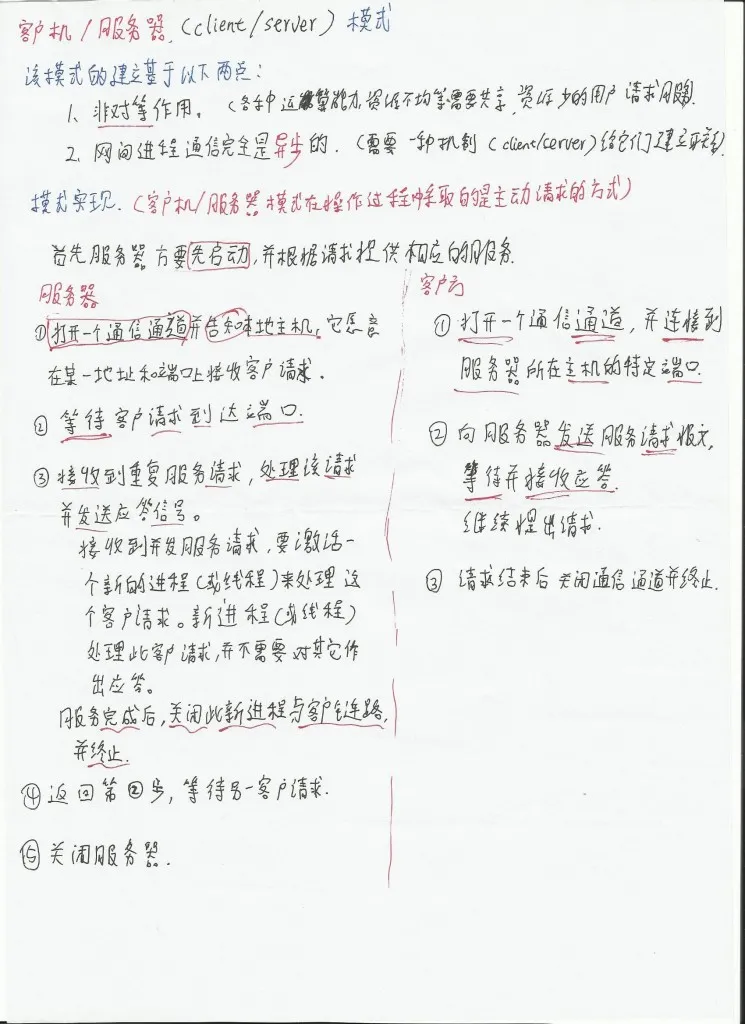 客户机/服务器 (client/server) 模式
该模式的建立基于以下两点:
1、非对等作用。(各种运算能力,资源不均等需要共享,资源少的用户请求服务)
2、网间进程通信完全是异步的.(需要一种机制(client/server)给它们建立联系)
模式实现.(客户机/服务器模式在操作过程中采取的是主动请求的方式)
首先服务器方要先启动,并根据请求提供相应的服务.
服务器
①打开一个通信通道并告知本地主机,它愿意
在某一地址和端口上接收客户请求.
②等待客户请求到达端口.
③接收到重复服务请求,处理该请求
并发送应答信号。
接收到并发服务请求,要激活一
个新的进程(或线程)来处理这
个客户请求。新进程(或线程)
处理此客户请求,并不需要对其它作
出应答。
服务完成后,关闭此新进程与客户链路,
并终止.
④返回第②步,等待另一客户请求.
⑤关闭服务器.
客户方
①打开一个通信通道,并连接到
服务器所在主机的特定端口.
②向服务器发送服务请求报文,
等待并接收应答.
继续提出请求.
③请求结束后关闭通信通道并终止.